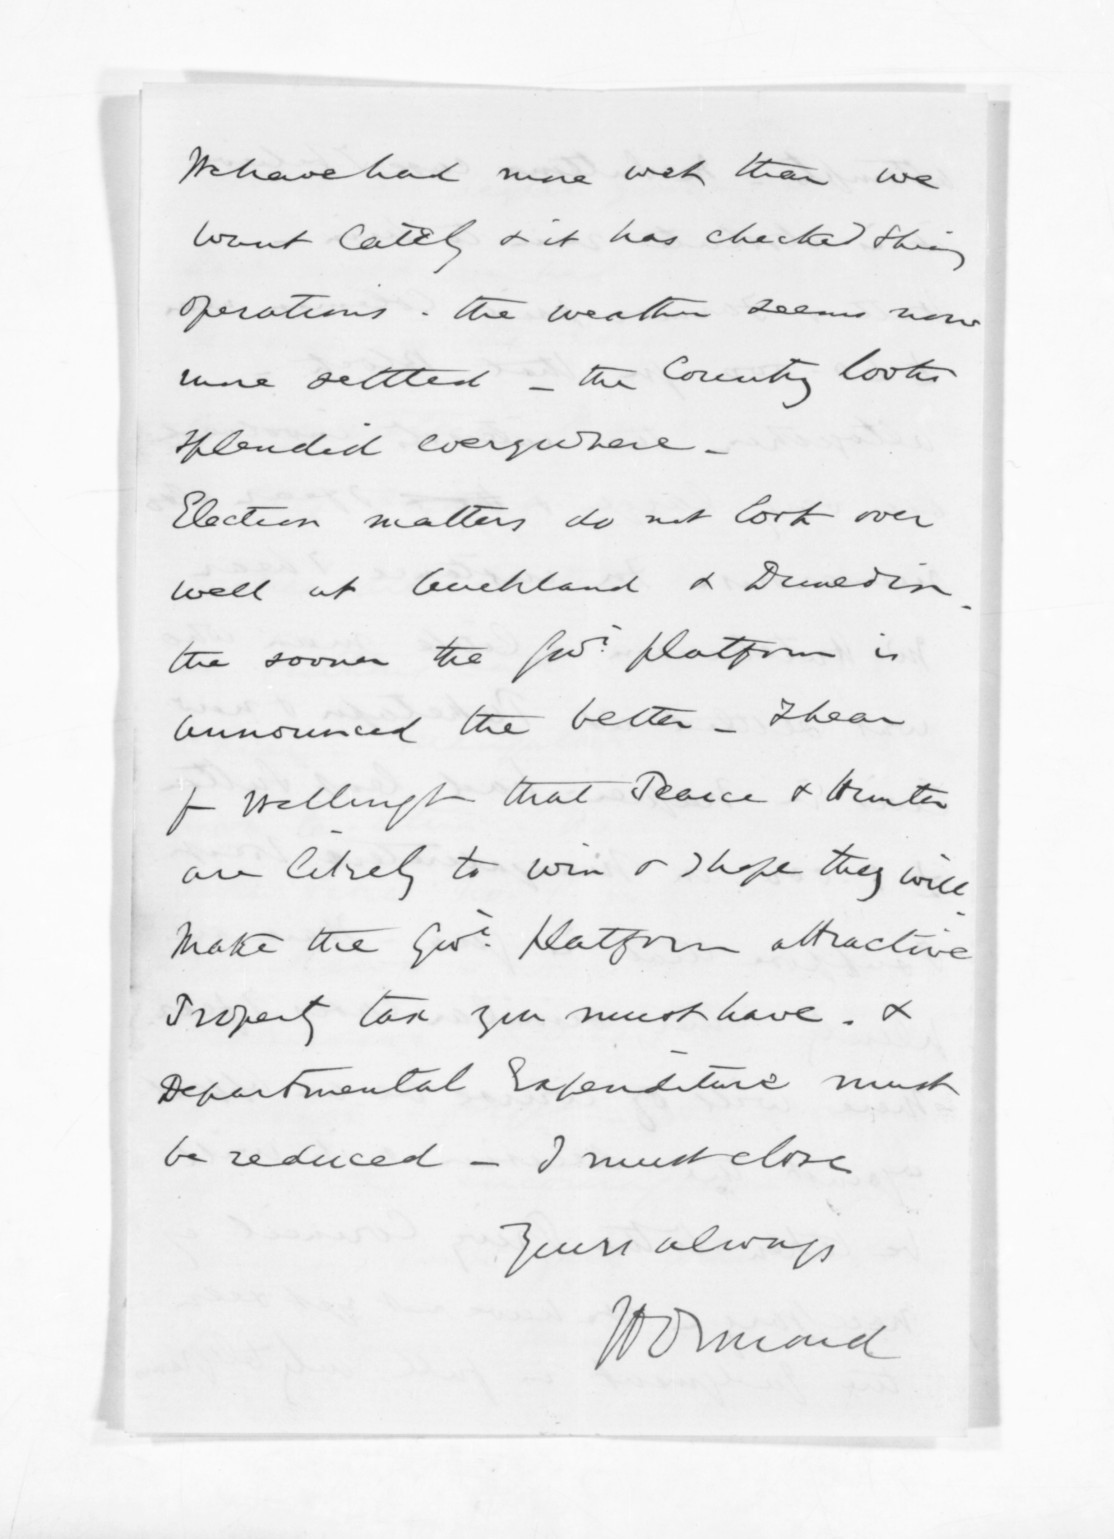 We have had more wet than we
want lately & it has checked
operations. the weather seems now
more settled — the Country looks
splendid everywhere —
Election matters do not look over
well at Auckland & Dunedin.
the sooner the Govt. platform is
announced the better — I hear
f Wellingt that Pearce & Hunter
are likely to win & I hope they will.
Make the Govt. platform attractive
Property tax you must have. &
Departmental Expenditure must
be reduced — I must close
Yours always
JD Ormond